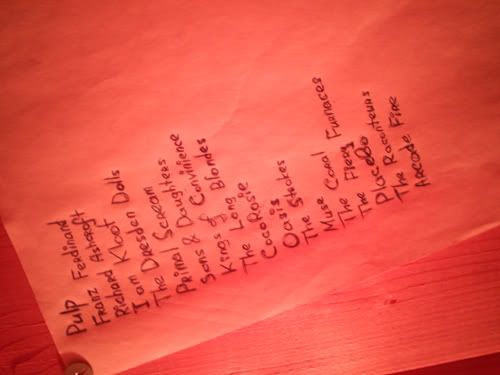 Pulp
Franz Ferdinand
Richard Ashcroft
I am Kloot
The Dresden Dolls
Primal Scream
Sons & Daughters
Kings of Convinience
The Long Blondes
CocoRosie
Oasis
The Strokes
Muse
The Coral
The Fiery Furnaces
Placebo
The Raconteurs
Arcade Fire